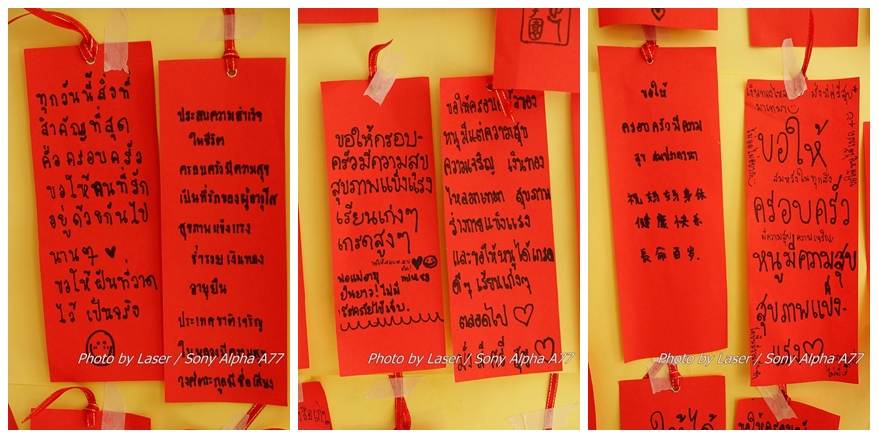 ทุกวันนี้ สิ่งที่
สำคัญที่สุด
คือครอบครัว
ขอให้คนที่รัก
อยู่ด้วยกันไป
นานๆ ♥
ขอให้ฝันที่วาด
ไว้ เป็นจริง
ประสบความสำเร็จ
ในชีวิต
ครอบครัวมีความสุข
เป็นที่รักของผู้อาวุโส
สุขภาพแข็งแรง
ร่ำรวย เงินทอง
อายุยืน
ประเทศชาติเจริญ
Photo by Laser / Sony Alpha A77
ขอให้ครอบ-
ครัวมีความสุข
สุขภาพแข็งแรง
เรียนเก่งๆ
เกรดสูงๆ
พ่อแม่อายุ
ยืนยาว! ไม่มี
ขอให้ครอบครัวของ
หนูมีแต่ความสุข
ความเจริญ เงินทอง
ไหลมาเทมา สุขภาพ
ร่างกายแข็งแรง
และขอให้หนูได้เกรด
ดีๆ เรียนเก่งๆ
ตลอดไป ♡
Photo by Laser / Sony Alpha A77
ขอให้
ครอบครัวมีความ
สุข สมปรารถนา
祝妈妈身体
健康快乐
長命百岁.
ขอให้
สมหวังในทุกสิ่ง
ครอบครัว
มีความสุข ความเจริญ
หนูมีความสุข
สุขภาพแข็ง-
แรง♡
Photo by Laser / Sony Alpha A77